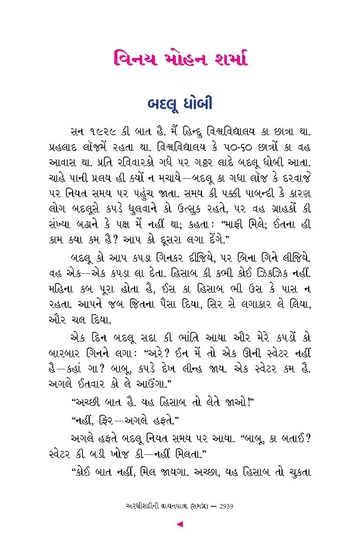 વિનય મોહન શર્મા
બદલૂ ધોબી
સન ૧૯૨૯ કી બાત હૈ. મૈં હિન્દુ વિશ્વવિદ્યાલય કા છાત્રા થા.
પ્રહલાદ લૉજમેં રહતા થા. વિશ્વવિદ્યાલય કે ૫૦-૬૦ છાત્રોં કા વહ
આવાસ થા. પ્રતિ રવિવારકો ગધે પર ગટ્ઠર લાદે બદલૂ ધોબી આતા.
ચાહે પાની પ્રલય હી ક્યોં ન મચાયે—બદલૂ કા ગધા લૉજ કે દરવાજે
પર નિયત સમય પર પહુંચ જાતા. સમય કી પક્કી પાબન્દી કે કારણ
લોગ બદલૂસે કપડે ધુલવાને કો ઉત્સુક રહતે, પર વહ ગ્રાહકોં કી
સંખ્યા બઢાને કે પક્ષ મેં નહીં થા; કહતા: “માફી મિલે; ઈતના હી
કામ ક્યા કમ હૈ? આપ કો દૂસરા લગા દેંગે.”
બદલૂ કો આપ કપડા ગિનકર દીજિયે, પર બિના ગિને લીજિયે.
વહ એક—એક કપડા લા દેતા. હિસાબ કી કભી કોઈ ઝિકઝિક નહીં.
મહિના કબ પૂરા હોતા હૈ, ઈસ કા હિસાબ ભી ઉસ કે પાસ ન
રહતા. આપને જબ જિતના પૈસા દિયા, સિર સે લગાકાર લે લિયા,
ઔર ચલ દિયા.
એક દિન બદલૂ સદા કી ભાંતિ આયા ઔર મેરે કપડોં કો
બારબાર ગિનને લગા: “અરે? ઈન મેં તો એક ઊની સ્વેટર નહીં
હૈ—કહાં ગા? બાબૂ, કપડે દેખ લીન્હ જાય. એક સ્વેટર કમ હૈ.
અગલે ઈતવાર કો લે આઉંગા.”
“અચ્છી બાત હૈ. યહ હિસાબ તો લેતે જાઓ!”
“નહીં, ફિર—અગલે હફતે.”
અગલે હફતે બદલૂ નિયત સમય પર આયા. “બાબૂ, કા બતાઈ?
સ્વેટર કી બડી ખોજ કી—નહીં મિલતા.”
“કોઈ બાત નહીં, મિલ જાયગા. અચ્છા, યહ હિસાબ તો ચુકતા
અરધીસદીની વાચનયાત્રા (સમગ્ર) — 2939